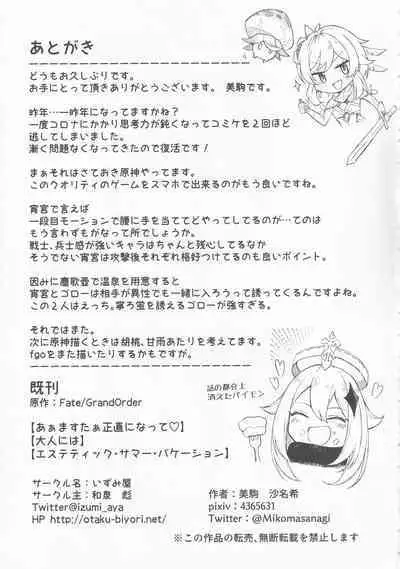 あとがき
どうもお久しぶりです。
お手にとって頂きありがとうございます。 美駒です。
昨年…一昨年になってますかね?
一度コロナにかかり思考力が鈍くなってコミケを2回ほど
逃してしまいました。
漸く問題なくなってきたので復活です!
まぁそれはさておき原神やってます。
このクオリティのゲームをスマホで出来るのがもう良いですね。
宵宮で言えば
一段目モーションで腰に手を当ててどやってしてるのが…てのは
もう言わずもがなって所でしょうか。
戦士、兵士感が強いキャラはちゃんと残心してるなか
そうでない宵宮は攻撃後それぞれ格好つけてるのも良いポイント。
因みに塵歌壺で温泉を用意すると
宵宮とゴローは相手が異性でも一緒に入ろうって誘ってくるんですよね。
この2人はえっち。寧ろ蛍を誘えるゴローが強すぎる。
それではまた。
次に原神描くときは胡桃、甘雨あたりを考えてます。
fgoをまた描いたりするかもですが。
話の都合上
消えたパイモン
既刊
原作:Fate/GrandOrder
【あぁますたぁ正直になって♡】
【大人には】
【エステティック・サマー・バケーション】
サークル名:いずみ屋
サークル主:和泉 彪
Twitter@izumi_aya
HP http://otaku-biyori.net/
作者:美駒 沙名希
pixiv:4365631
Twitter:@Mikomasanagi
※この作品の転売、無断転載を禁止します